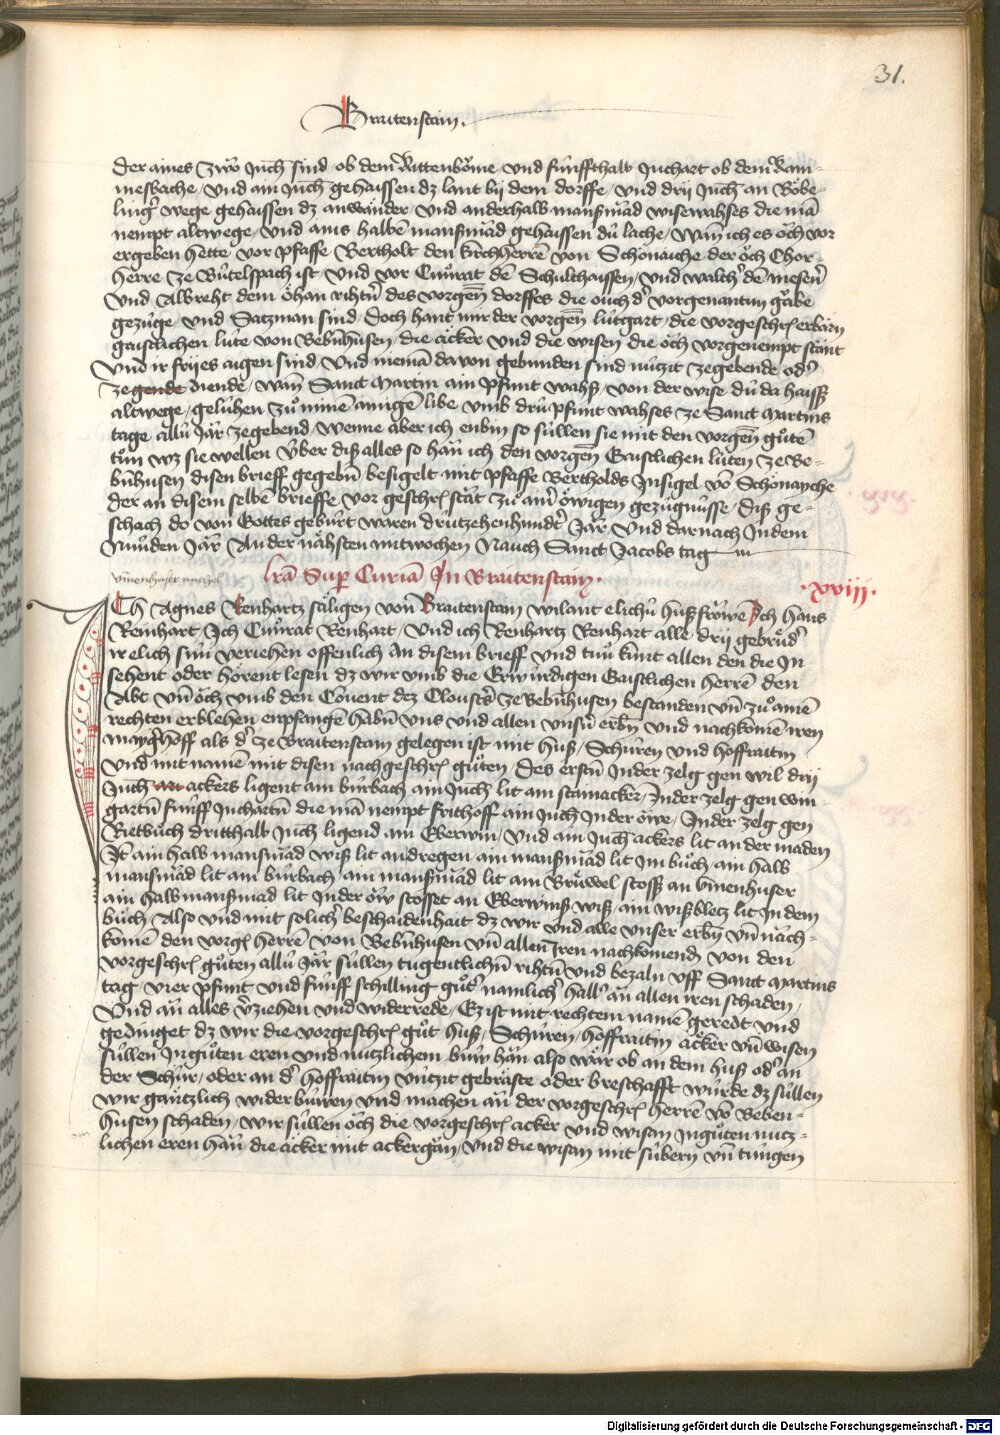 31.
Braitenstain.
der aines zwo᷑ Juch᷑ sind ob dem Wittenbo᷑me / vnd fu᷑nffthalb Juchart ob dem Ram-
mesbache / vnd ain Juch᷑ gehaissen dz lant bij dem dorffe / vnd drij Juch᷑ an Bo᷑be-
ling᷑ wege gehaissen dz anwander / vnd anderhalb manßmad wisewahses die ma᷑
nempt altwege / vnd ains halbe᷑ manßmad gehaissen du᷑ lache / Wan᷑ ich es o᷑ch vor
ergeben hette vor pfaffe Bertholt den kirchherre᷑ von Scho᷑naiche der o᷑ch Chor-
herre ze Bu᷑telspach ist / vnd vor Cu᷑nrat de᷑ Schulthaissen / vnd walch᷑ de᷑ mesen᷑
vnd Albreht dem o᷑han riht᷑n des vorgen᷑ dorffes die ouch d᷑ vorgenantun ga᷑be
gezu᷑ge / vnd Satzman sind / Doch hant mir der vorgen᷑ lutgart / die vorgeschr᷑ erbarn
gaistlichen lute von Bebn᷑husen / die a᷑cker vnd die wisen die o᷑ch vorgenempt stant
vnd ir frijes aigen sind / vnd niema᷑ davon gebunden sind nu᷑tzit zegebende od᷑
ze gende diende / wan᷑ Sanct martin ain pfunt wahß / von der wise du᷑ da haisß
altwege / geluhen zu᷑ mine᷑ ainige᷑ libe vmb dru᷑ pfunt wahses ze Sanct martins
tage allu᷑ Jar zegebend / wenne aber ich enbin so su᷑llen sie mit den vorgen᷑ gu᷑te᷑
tu᷑n wz sie wellen v᷑ber diß alles so han᷑ ich den vorgen᷑ Gaistlichen lu᷑ten ze Be-
bn᷑husen disen brieff gegeb᷑n besigelt mit pfaffe Bertholds Jnsigel vo᷑ Scho᷑nayche
der an disem selbe᷑ brieffe / vor geschr᷑ stat zu᷑ ain᷑ o᷑wigen gezu᷑gnu᷑sse / diß ge-
schach do von Gottes geburt waren dru᷑tzehenhundt᷑ Jar / vnd darnach Jndem
Nu᷑nden Jar An der na᷑hsten mitwochen Nauch Sanct Jacobs tag
lra᷑ Sup᷑ Curia᷑ Jn Braitenstain.
.xviij.
Ich Agnes Renhartz sa᷑ligen von᷑ Braitenstain wilant elichu᷑ hußfro᷑we᷑ Ich hans
Reinhart / Ich Cu᷑nrat Renhart / vnd ich Renhartz Renhart alle drij gebru᷑d᷑
ir elich su᷑n᷑ veriehen offenlich an disem brieff vnd tun᷑ kunt allen den die Jn
sehent oder ho᷑rent lesen dz wir vmb die Erwu᷑rdigen Gaistlichen herre᷑ den
Abt vn᷑ o᷑ch vmb den Co᷑uent dez Clousters᷑ ze Bebn᷑husen bestanden vn᷑ zu᷑ aine᷑
rechten erblehen enpfange᷑ habn᷑ vns vnd allen vnsn᷑ erbn᷑ vnd nachkome᷑ iren
mayg᷑hoff als d᷑ ze Braitenstain gelegen ist mit huß / Schu᷑ren vnd hoffraitin
vnd mit name᷑ mit disen nachgeschr᷑ gu᷑ten / Des erstn᷑ Jnder zelg gen wil drij
Juch᷑ ackers ligent am burbach / ain Juch᷑ lit am stainacker / Jnder zelg gen win-
gartn᷑ fu᷑nff Juchartn᷑ die ma᷑ nempt frithoff / ain Juch᷑ Jnder o᷑we / Jnder zelg gen
Rietbu᷑ch dritthalb Juch᷑ ligend am Eberwin / vnd ain Juch᷑ ackers lit an der maden
Jt᷑ ain halb mansmad wiß lit andregen / ain manßmad lit Jm bu᷑ch / ain halb
manßmad lit am burbach / ain manßmad lit am Bru᷑wel stosß an vinenhuser
ain halb manßmad lit Jnder o᷑w stosset an Eberwinß wiß / ain wißbletz lit Jn dem
bu᷑ch / Also vnd mit solich᷑ beschaidenhait dz wir vnd alle vnser erbn᷑ vn᷑ nach-
kome᷑ den vorg᷑ herre᷑ von Bebn᷑husen vn᷑ allen᷑ Iren nachkomend᷑ von den
vorgeschr᷑ gu᷑ten allu᷑ Jar su᷑llen tugentlichn᷑ rihtn᷑ vnd bezaln vff Sanct martins
tag / vier pfunt vnd fu᷑nff schilling gu᷑t᷑ namlich᷑ hall᷑ an᷑ allen iren schaden /
vnd an᷑ alles v᷑ziehen vnd widerrede / Ez ist mit rechtem name᷑ geredt vnd
gedinget dz wir die vorgeschr᷑ gu᷑t huß / Schu᷑ren / hoffraitin a᷑cker vn᷑ wisen
su᷑llen Jn gu᷑ten eren vnd nutzlichem buw han᷑ also wa᷑r ob an dem huß od᷑ an
der Schu᷑r / oder an d᷑ hoffraitin vntzit gebra᷑ste oder breschafft wu᷑rde dz su᷑llen
wir ga᷑ntzlich wider bu᷑wen vnd machen an᷑ der vorgeschr᷑ herre᷑ vo᷑ Beben-
husen schaden / wir su᷑llen o᷑ch die vorgeschr᷑ acker vnd wisan Jn gu᷑ten nutz-
lichen eren han᷑ die a᷑cker mit ackerga᷑n / vnd die wisan mit su᷑bern vn᷑ tungen
Digitalisierung gefördert durch die Deutsche Forschungsgemeinschaft - DFG